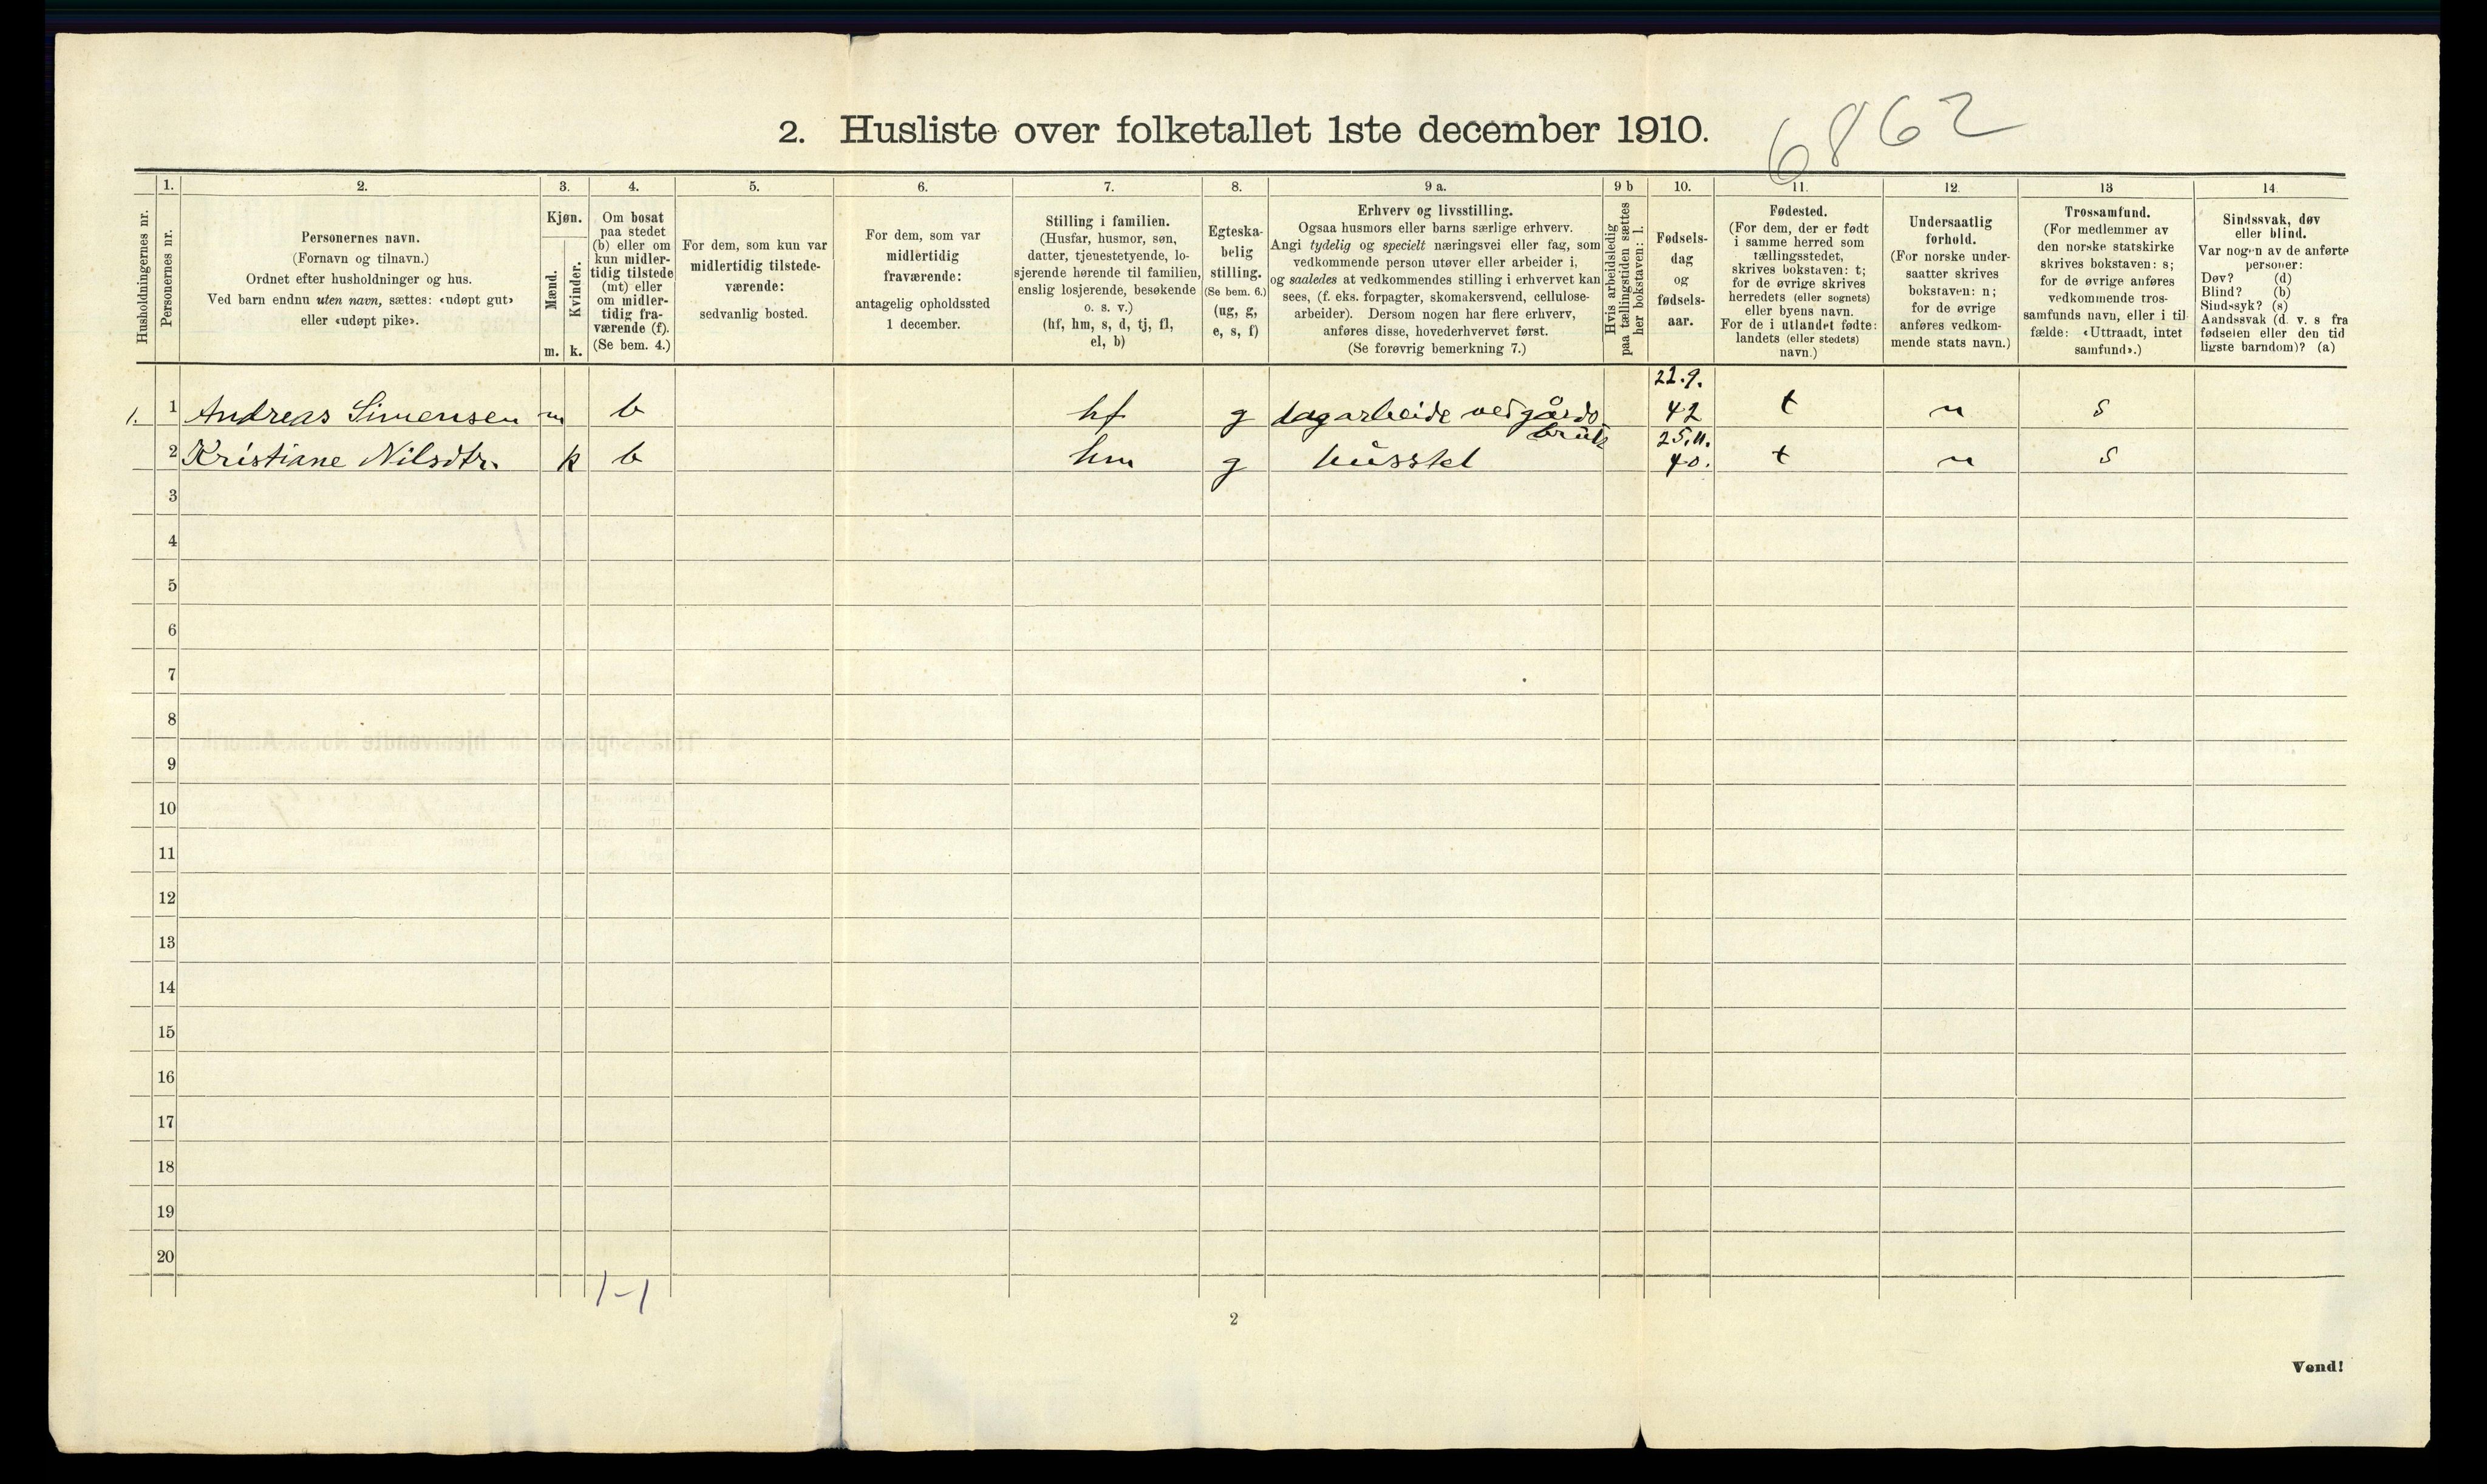 2. Husliste over folketallet 1ste december 1910.
6862
Husholdningernes nr.
1.
Personernes nr.
2.
Personernes navn.
(Fornavn og tilnavn.)
Ordnet efter husholdninger og hus.
Ved barn endnu uten navn, sættes: «udøpt gut»
eller «udøpt pike».
3.
Kjøn.
Mænd.
Kvinder.
m. k.
4.
Om bosat
paa stedet
(b) eller om
kun midler-
tidig tilstede
(mt) eller
om midler-
tidig fra-
værende (f).
(Se bem. 4.)
5.
For dem, som kun var
midlertidig tilstede-
værende:
sedvanlig bosted.
6.
For dem, som var
midlertidig
fraværende:
antagelig opholdssted
1 december.
7.
Stilling i familien.
(Husfar, husmor, søn,
datter, tjenestetyende, lo-
sjerende hørende til familien,
enslig losjerende, besøkende
o. s. v.)
(hf, hm, s, d, tj, fl,
el, b)
8.
Egteska-
belig
stilling.
(Se bem. 6.)
(ug, g,
e, s, f)
9 a.
Erhverv og livsstilling.
Ogsaa husmors eller barns særlige erhverv.
Angi tydelig og specielt næringsvei eller fag, som
vedkommende person utøver eller arbeider i,
og saaledes at vedkommendes stilling i erhvervet kan
sees, (f. eks. forpagter, skomakersvend, cellulose-
arbeider). Dersom nogen har flere erhverv,
anføres disse, hovederhvervet først.
(Se forøvrig bemerkning 7.)
9 b
Hvis arbeidsledig
paa tællingstiden sættes
her bokstaven: l.
10.
Fødsels-
dag
og
fødsels-
aar.
11.
Fødested.
(For dem, der er født
i samme herred som
tællingsstedet,
skrives bokstaven: t;
for de øvrige skrives
herredets (eller sognets)
eller byens navn.
For de i utlandet fødte:
landets (eller stedets)
navn.)
12.
Undersaatlig
forhold.
(For norske under-
saatter skrives
bokstaven: n;
for de øvrige
anføres vedkom-
mende stats navn.)
13
Trossamfund.
(For medlemmer av
den norske statskirke
skrives bokstaven: s;
for de øvrige anføres
vedkommende tros-
samfunds navn, eller i til-
fælde: «Uttraadt, intet
samfund».)
14.
Sindssvak, døv
eller blind.
Var nogen av de anførte
personer:
Døv? (d)
Blind? (b)
Sindssyk? (s)
Aandssvak (d. v. s fra
fødselen eller den tid
ligste barndom)? (a)
22.9.
1. 1 Andreas Simensen m b hf g dagarbeide ved gårds 42 t n s
bruk 25.11.
2 Kristiane Nilsdtr. k b hm g husstel 40. t n s
3
4
5
6
7
8
9
10
11
12
13
14
15
16
17
18
19
20
1-1
2
Vend!